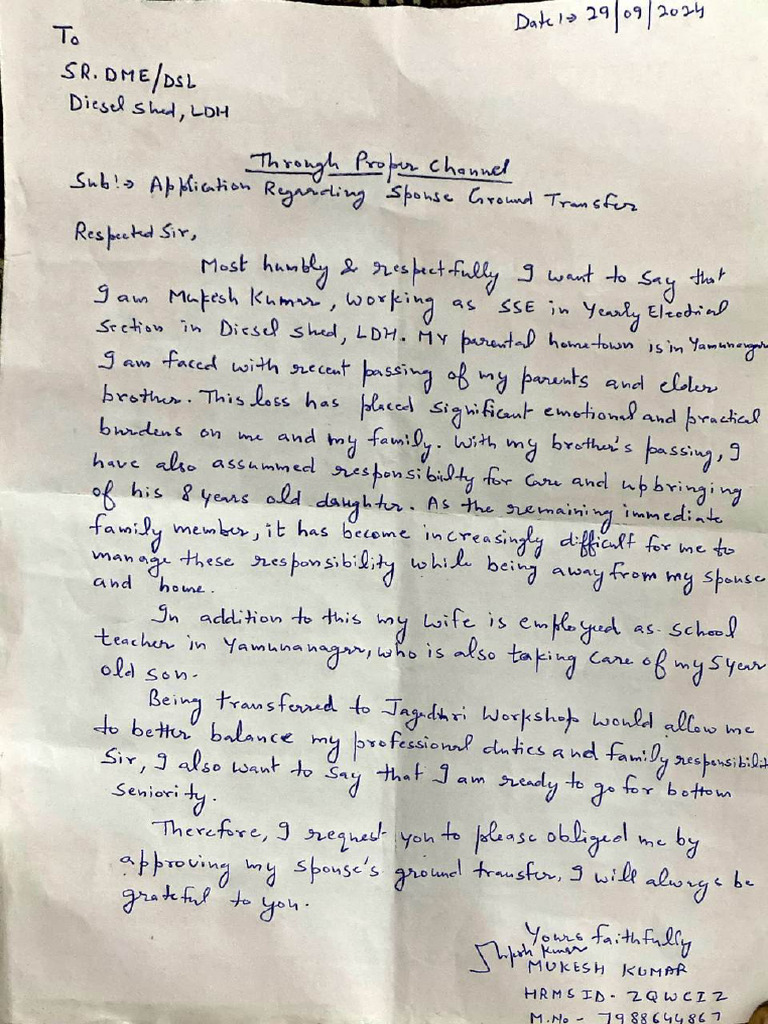 Date :→ 29/09/2024
To
SR. DME/DSL
Diesel Shed, LDH
Through Proper Channel
Sub :→ Application Regarding Spouse Ground Transfer
Respected Sir,
Most humbly & respectfully I want to say that
I am Mukesh Kumar, working as SSE in Yearly Electrical
Section in Diesel Shed, LDH. My parental hometown is in Yamunanagar
I am faced with recent passing of my parents and elder
brother. This loss has placed significant emotional and practical
burdens on me and my family. With my brother's passing, I
have also assummed responsibility for care and upbringing
of his 8 years old daughter. As the remaining immediate
family member, it has become increasingly difficult for me to
manage these responsibility while being away from my spouse
and home.
In addition to this my wife is employed as school
teacher in Yamunanagar, who is also taking care of my 5 year
old son.
Being transferred to Jagadhri Workshop would allow me
to better balance my professional duties and family responsibilit
Sir, I also want to say that I am ready to go for bottom
seniority.
Therefore, I request you to please obliged me by
approving my spouse's ground transfer, I will always be
grateful to you.
Yours faithfully
Mukesh Kumar
MUKESH KUMAR
HRMS ID - ZQWCIZ
M.No - 7988644867